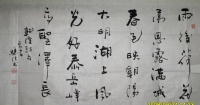 雨後荷花
承恩露滿城
春色映朝陽
大明湖上風
光好泰岳峰
高聖澤長